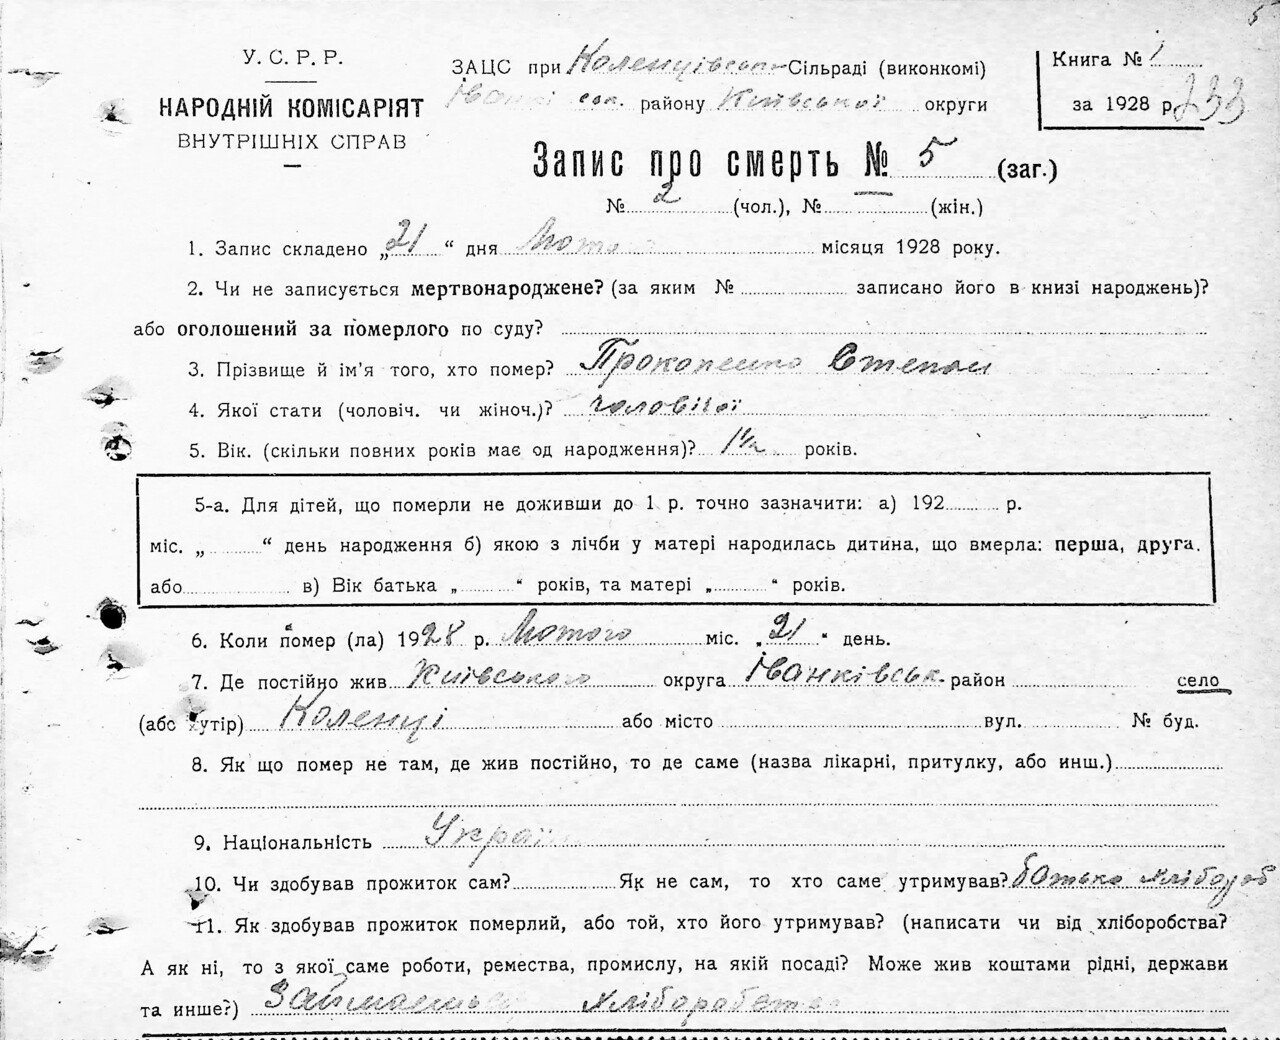 5
У. С. Р. Р.
НАРОДНІЙ КОМІСАРІЯТ
ВНУТРІШНІХ СПРАВ
ЗАЦС при Коленцівськ Сільраді (виконкомі)
Іванківськ. району Київської округи
Книга № 1
за 1928 р.
233
Запис про смерть № 5 (заг.)
№ 2 (чол.), № — (жін.)
1. Запис складено „21“ дня Лютого місяця 1928 року.
2. Чи не записується мертвонароджене? (за яким № записано його в книзі народжень)?
або оголошений за померлого по суду?
3. Прізвище й ім’я того, хто помер? Прокопенко Степан
4. Якої стати (чоловіч. чи жіноч.)? чоловічої
5. Вік. (скільки повних років має од народження)? 1½ років.
5-а. Для дітей, що померли не доживши до 1 р. точно зазначити: а) 192 р.
міс. „ “ день народження б) якою з лічби у матері народилась дитина, що вмерла: перша, друга.
або в) Вік батька „ “ років, та матері „ “ років.
6. Коли помер (ла) 1928 р. Лютого міс. „21“ день.
7. Де постійно жив Київського округа Іванківськ. район село
(або хутір) Коленці або місто вул. № буд.
8. Як що помер не там, де жив постійно, то де саме (назва лікарні, притулку, або инш.)
9. Національність Україн
10. Чи здобував прожиток сам? Як не сам, то хто саме утримував? батько хлібороб
11. Як здобував прожиток померлий, або той, хто його утримував? (написати чи від хліборобства?
А як ні, то з якої саме роботи, ремества, промислу, на якій посаді? Може жив коштами рідні, держави
та инше?) Займаетьсь хліборобством